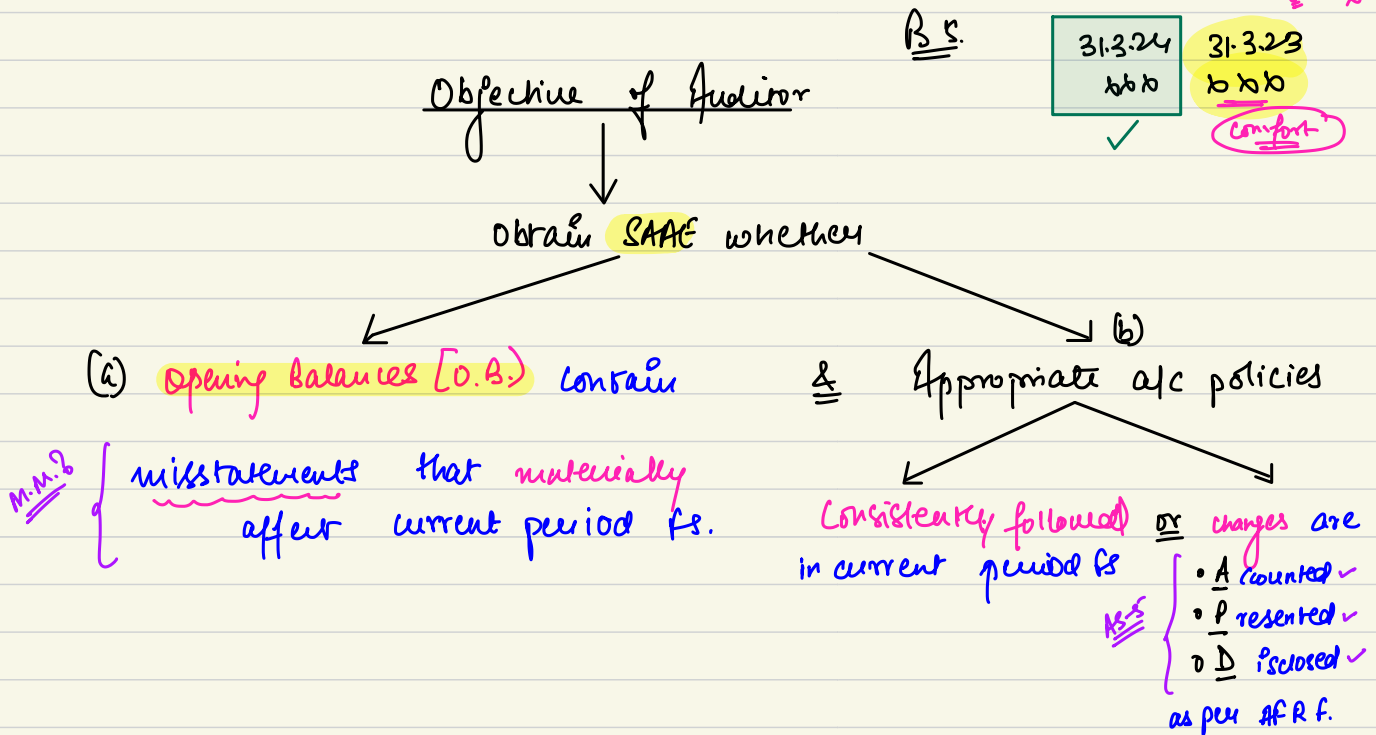 B S.
31.3.24 31.3.23
xxx xxx
comfort
Objective of Auditor
Obtain SAAE whether
(a) Opening Balances [O.B.) contain
misstatements that materially
affect current period fs.
M.M.?
&
(b)
Appropriate a/c policies
Consistently followed or changes are
in current period fs
• Accounted ✓
• Presented ✓
• Disclosed ✓
AS-5
as per AFRF.